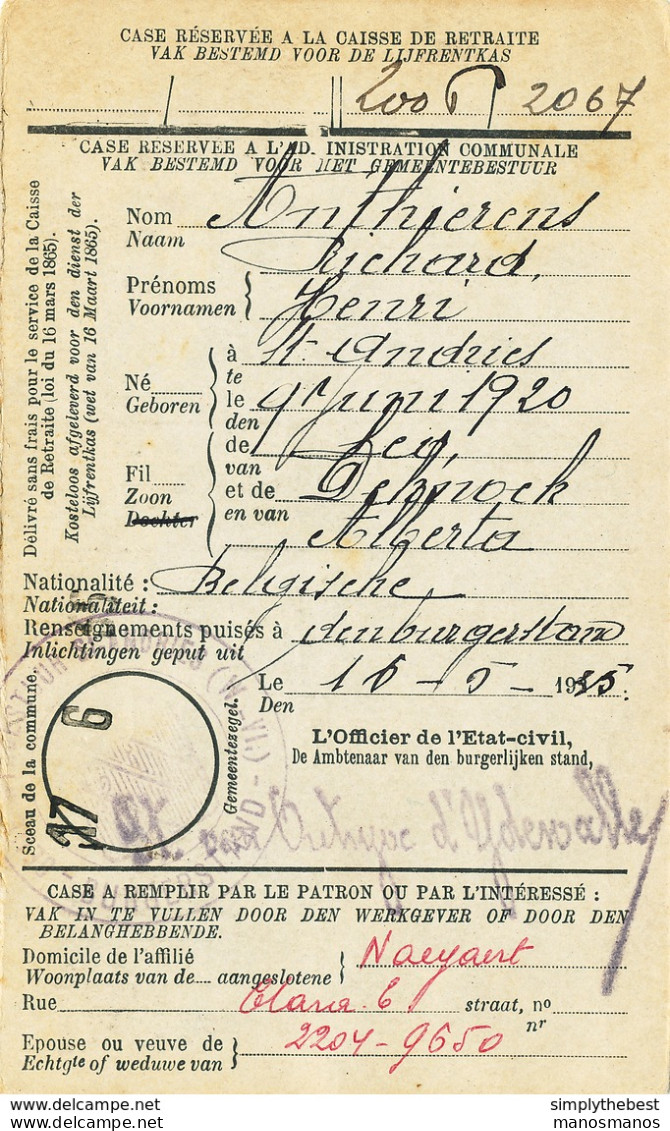 CASE RÉSERVÉE A LA CAISSE DE RETRAITE
VAK BESTEMD VOOR DE LIJFRENTKAS
2067
CASE RESERVEE A L'AD. INISTRATION COMMUNALE
VAK BESTEMD VOOR HET GEMEENTEBESTUUR
Délivré sans frais pour le service de la Caisse
de Retraite (loi du 16 mars 1865).
Kosteloos afgeleverd voor den dienst der
Lijfrentkas (wet van 16 Maart 1865).
Nom Anthierens
Naam Richard,
Prénoms
Voornamen } Henri
Né
Geboren
à
te St. Andries
le
den 9n Juni 1920
Fil
Zoon
Dochter
de
van
et de Debrock
en van Alberta
Nationalité : Belgische
Nationaliteit :
Renseignements puisés à
Inlichtingen geput uit
Le 16 - 5 - 1935.
Den
Sceau de la commune.
Gemeentezegel.
6
L'Officier de l'Etat-civil,
De Ambtenaar van den burgerlijken stand,
d'Ydewalle
CASE A REMPLIR PAR LE PATRON OU PAR L'INTÉRESSÉ :
VAK IN TE VULLEN DOOR DEN WERKGEVER OF DOOR DEN
BELANGHEBBENDE.
Domicile de l'affilié
Woonplaats van de.... aangeslotene } Naeyaert
Rue Clara 6 straat, no
nr
Epouse ou veuve de
Echtgte of weduwe van } 2204-9650
www.delcampe.net
simplythebest
manosmanos